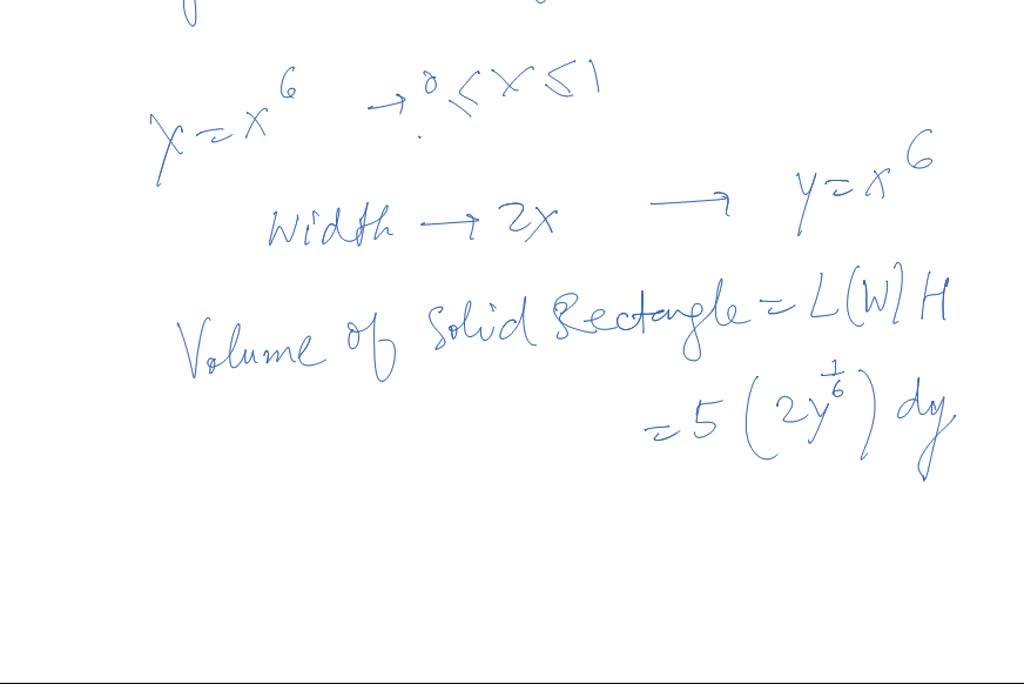 y = x^6 → 0 ≤ x ≤ 1
Width → 2x → y = x^6
Volume of Solid Rectangle = L(W) H
= 5 (2y^{1/6}) dy